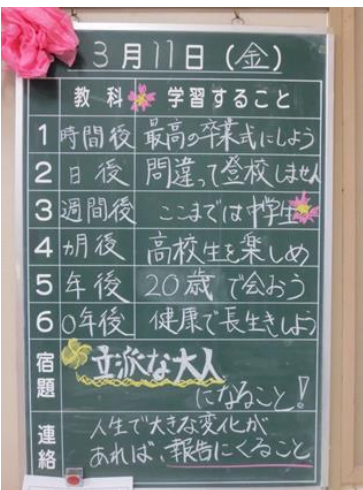 3月11日(金)
教科 学習すること
1 時間後 最高の卒業式にしよう
2 日後 問違って登校しません
3 週間後 ここまでは中学生
4 カ月後 高校生を楽しめ
5 年後 20歳で会おう
6 0年後 健康で長生きしよう
宿題 立派な大人
になること!
連絡 人生で大きな変化が
あれば、報告にくること